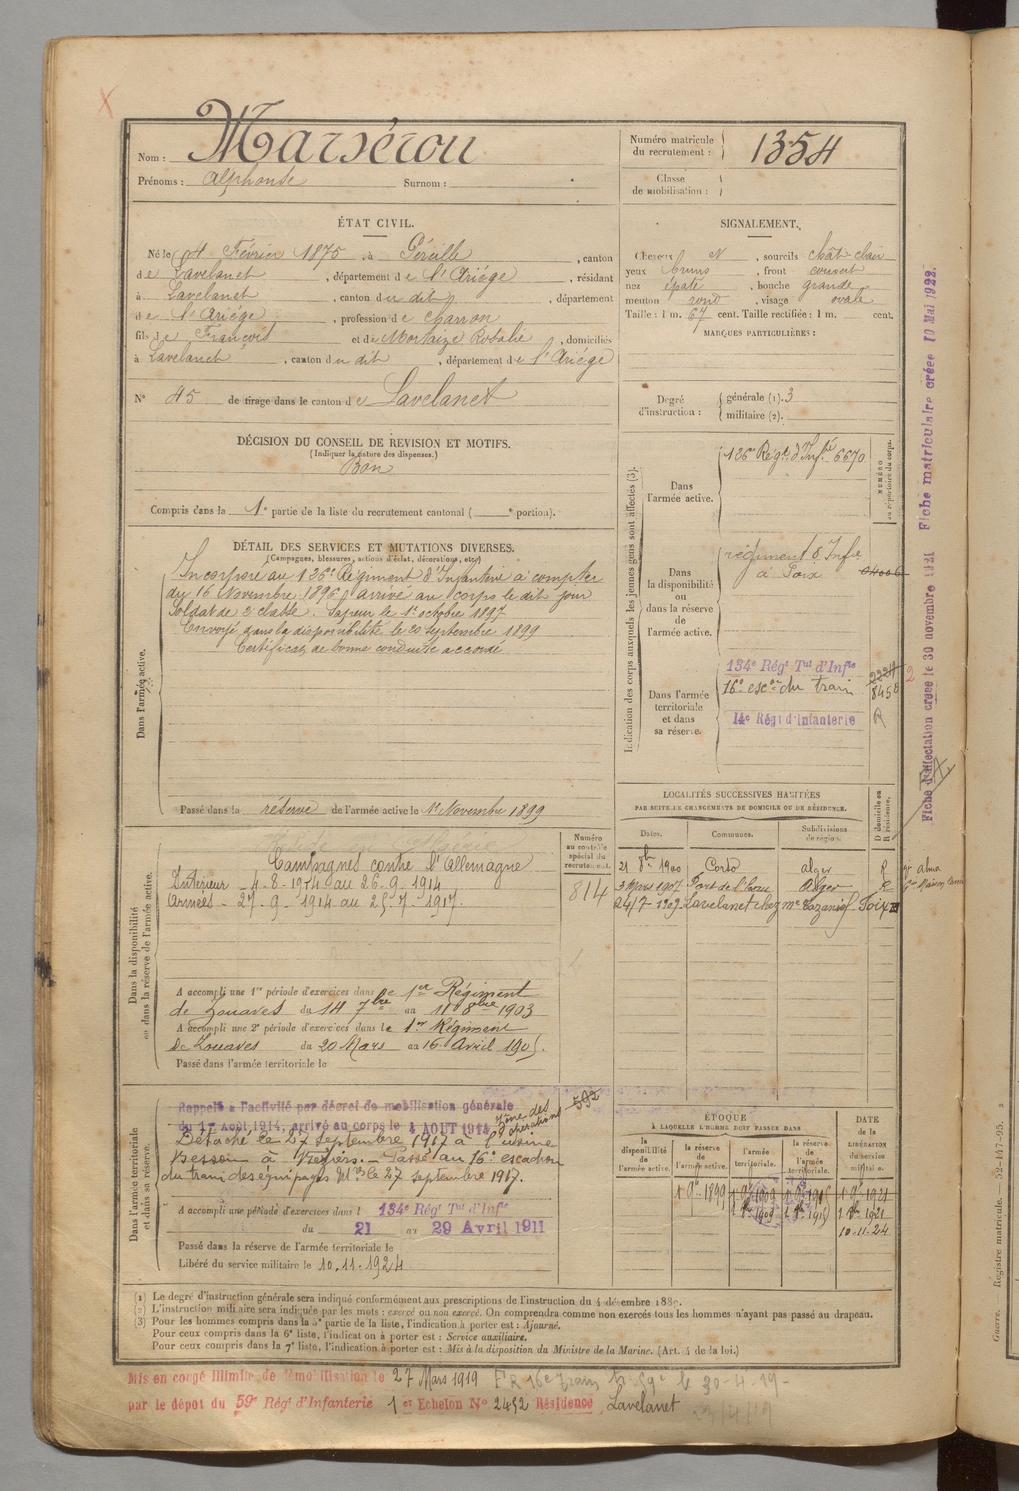 Nom : Marsérou
Prénoms : Alphonse Surnom :
Numéro matricule du recrutement : 1354
Classe de mobilisation :
ÉTAT CIVIL.
Né le 4 Février 1875, à Péreille, canton
de Lavelanet, département de l'Ariége, résidant
à Lavelanet, canton du dit, département
de l'Ariége, profession de charron
fils de François et de Mortaize Rosalie, domiciliés
à Lavelanet, canton du dit, département de l'Ariége
N° 45 de tirage dans le canton de Lavelanet
SIGNALEMENT.
Cheveux N, sourcils chât clair
yeux bruns, front couvert
nez épaté, bouche grande
menton rond, visage ovale
Taille : 1 m. 67 cent. Taille rectifiée : 1 m. cent.
MARQUES PARTICULIÈRES :
Degré d'instruction : générale (1). 3
militaire (2).
DÉCISION DU CONSEIL DE REVISION ET MOTIFS.
(Indiquer la nature des dispenses.)
Bon
Compris dans la 1e partie de la liste du recrutement cantonal ( e portion).
DÉTAIL DES SERVICES ET MUTATIONS DIVERSES.
(Campagnes, blessures, actions d'éclat, décorations, etc.)
Dans l'armée active.
Incorporé au 126e Régiment d'Infanterie à compter
du 16 Novembre 1896, arrivé au corps le dit jour
Soldat de 2e classe. Sapeur le 1er octobre 1897
Envoyé dans la disponibilité le 20 septembre 1899
Certificat de bonne conduite accordé
Passé dans la réserve de l'armée active le 1er Novembre 1899
Indication des corps auxquels les jeunes gens sont affectés (3).
NUMÉRO au répertoire du corps.
Dans l'armée active.
126e Régt d'Infie 6670
Dans la disponibilité ou dans la réserve de l'armée active.
régiment d'Infie
à Foix 04006
Dans l'armée territoriale et dans sa réserve.
134e Régt Tal d'Infie 2224
16e escon du train 8458
14e Régt d'Infanterie R
2
Fiche d'affectation créée le 30 novembre 1921 Fiche matriculaire créée 10 Mai 1922.
LOCALITÉS SUCCESSIVES HABITÉES
PAR SUITE DE CHANGEMENTS DE DOMICILE OU DE RÉSIDENCE.
Dates. Communes. Subdivisions de région. D domicile ou R résidence.
21 8bre 1900 Corso Alger R
3 Mars 1907 Port de l'Eau Alger R
24/7 1909 Lavelanet chez Me Foix
Dans la disponibilité ou dans la réserve de l'armée active.
Numéro au contrôle spécial du recrutement.
814
Campagnes contre l'Allemagne
Intérieur - 4-8-1914 au 26-9-1914
Armées - 27-9-1914 au 25-7-1917.
A accompli une 1re période d'exercices dans le 1er Régiment
de Zouaves du 14 7bre au 11 8bre 1903
A accompli une 2e période d'exercices dans le 1er Régiment
de Zouaves du 20 Mars au 16 Avril 1905.
Passé dans l'armée territoriale le
Dans l'armée territoriale et dans sa réserve.
592
Rappelé à l'activité par décret de mobilisation générale
du 1er Août 1914, arrivé au corps le 4 AOUT 1914 Zone des opérations
Détaché le 27 septembre 1917 à l'usine
Besson à Béziers. - Passé au 16e escadron
du train des équipages Mres le 27 septembre 1917.
A accompli une période d'exercices dans l 134e Régt Tal d'Infie
du 21 au 29 Avril 1911
Passé dans la réserve de l'armée territoriale le
Libéré du service militaire le 10.11.1924
ÉPOQUE
À LAQUELLE L'HOMME DOIT PASSER DANS
la disponibilité de l'armée active. la réserve de l'armée active. l'armée territoriale. la réserve de l'armée territoriale. DATE de la LIBÉRATION du service militaire.
1 9bre 1899 1 9bre 1909 1 9bre 1915 1 9bre 1921
1 8bre 1909 1 8bre 1915 1 8bre 1921
10-11-24
(1) Le degré d'instruction générale sera indiqué conformément aux prescriptions de l'instruction du 4 décembre 1889.
(2) L'instruction militaire sera indiquée par les mots : exercé ou non exercé. On comprendra comme non exercés tous les hommes n'ayant pas passé au drapeau.
(3) Pour les hommes compris dans la 5e partie de la liste, l'indication à porter est : Ajourné.
Pour ceux compris dans la 6e liste, l'indication à porter est : Service auxiliaire.
Pour ceux compris dans la 7e liste, l'indication à porter est : Mis à la disposition du Ministre de la Marine. (Art. 4 de la loi.)
Mis en congé illimité de démobilisation le 27 Mars 1919 FR 16e train le 30-4-19-
par le dépôt du 59e Régt d'Infanterie 1er Echelon N° 2452 Résidence Lavelanet
Guerre. Registre matricule. — 52-147-95.